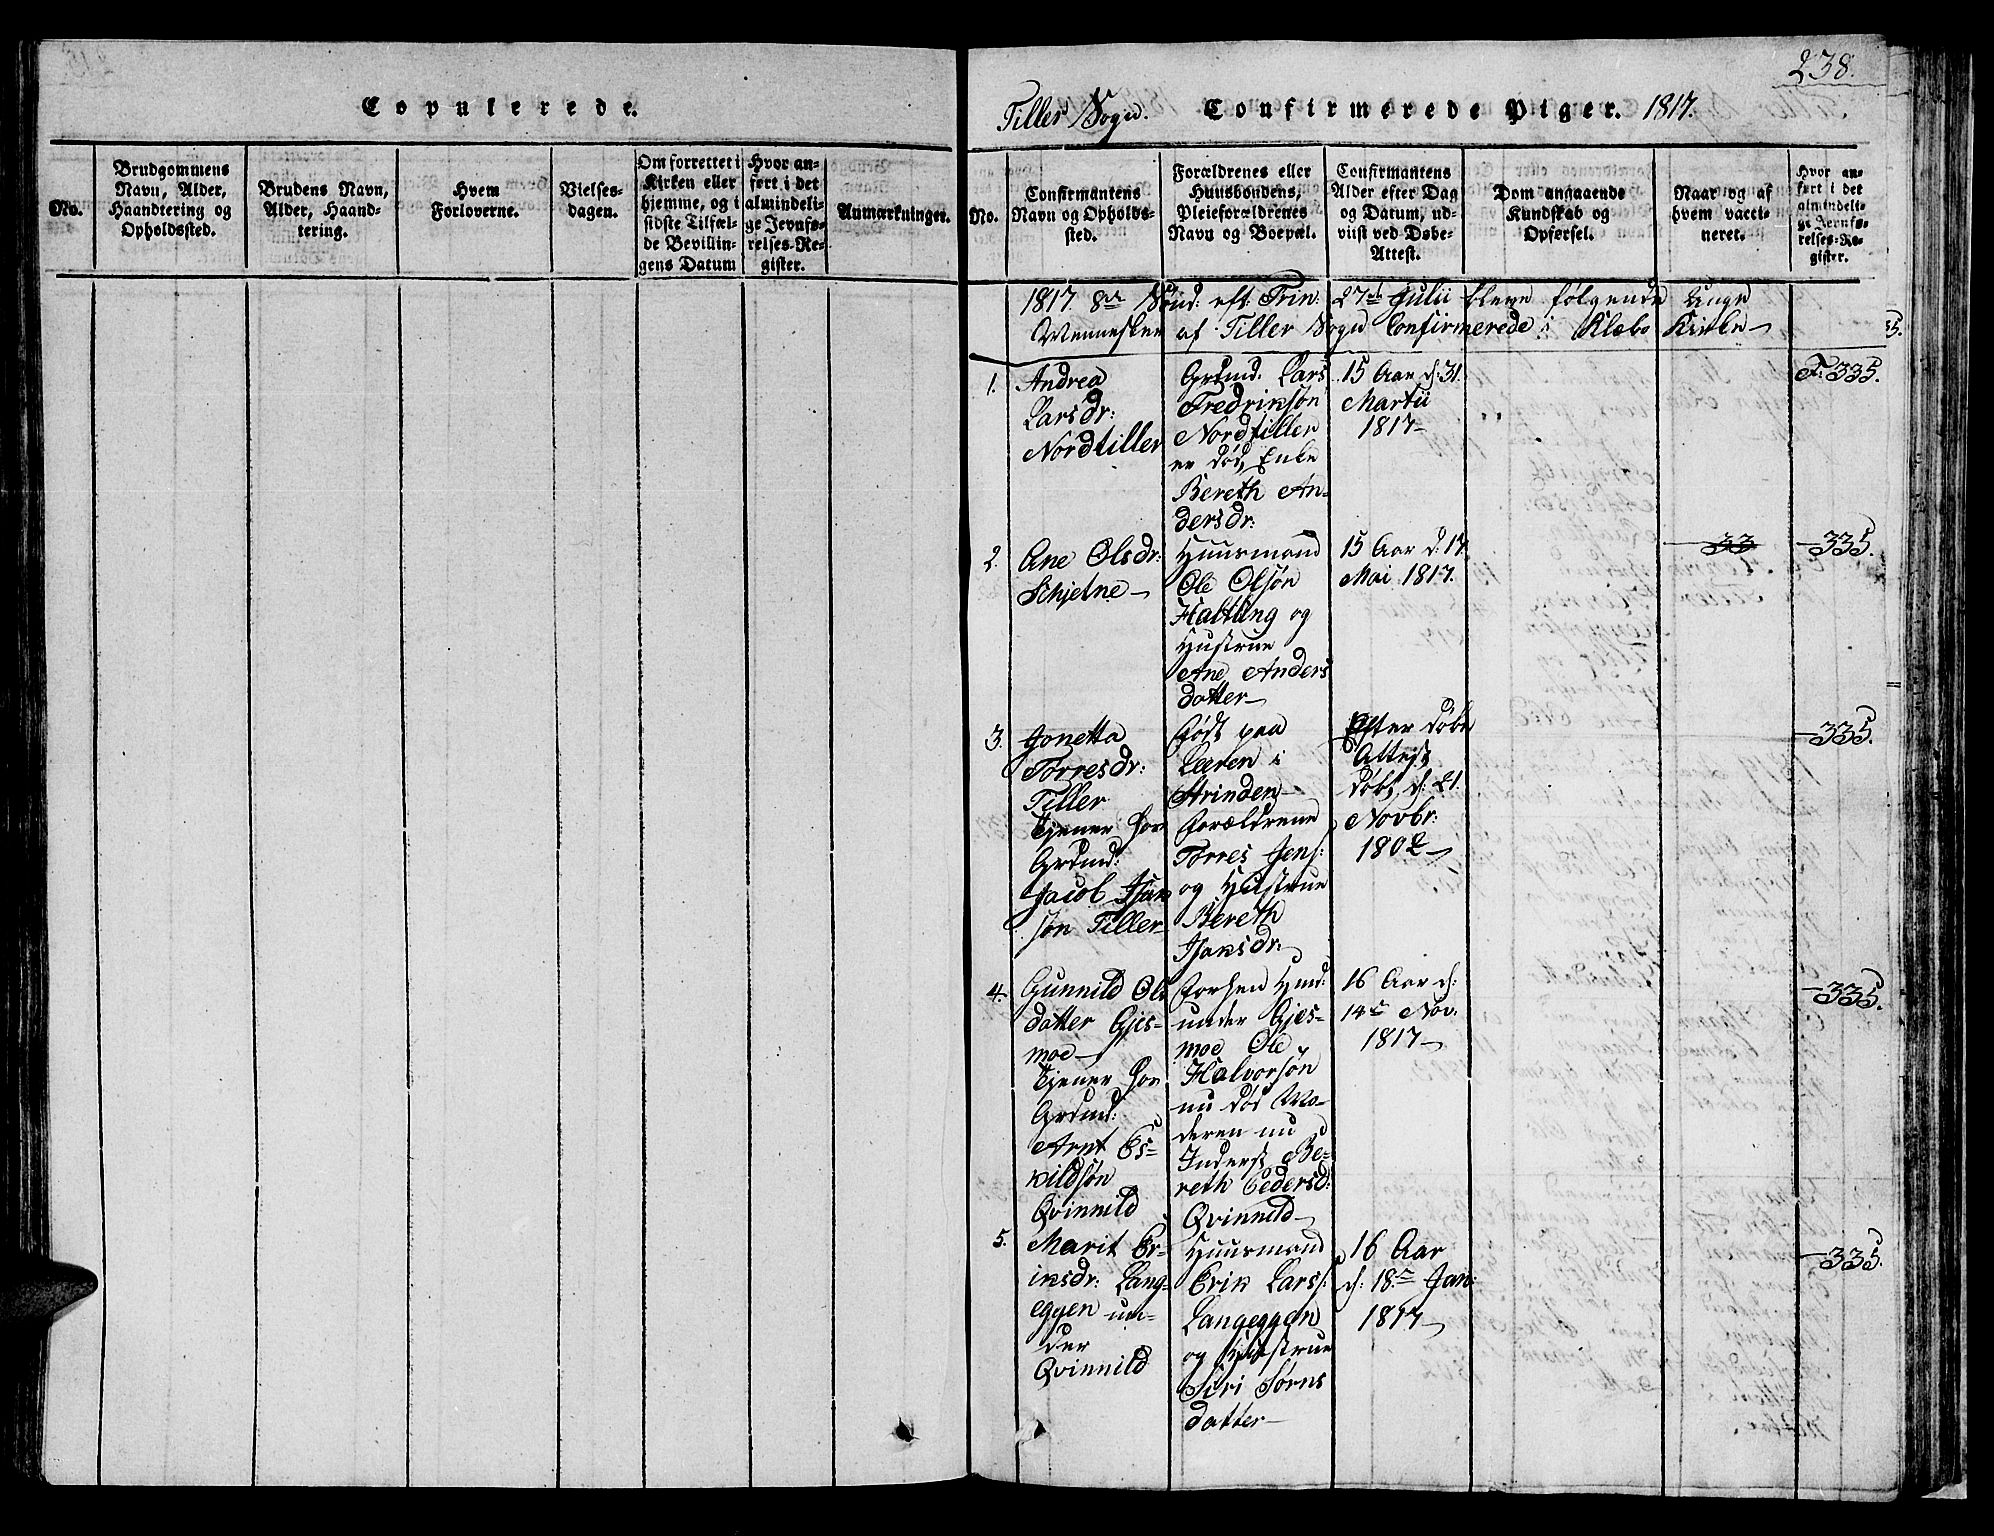 Copulerede.
No.
Brudgommens
Navn, Alder,
Haandtering og
Opholdssted.
Brudens Navn,
Alder, Haand-
tering.
Hvem
Forloverne.
Vielses-
dagen.
Om forrettet i
Kirken eller
hjemme, og i
sidste Tilfæl-
de Bevillin-
gens Datum
Hvor an-
ført i det
almindeli-
ge Jevnfø-
relses-Re-
gister.
Anmærkninger.
238.
Tiller Sogn.
Confirmerede Piger. 1817.
No.
Confirmantens
Navn og Opholds-
sted.
Forældrenes eller
Huusbondens,
Pleieforældrenes
Navn og Boepæl.
Confirmantens
Alder efter Dag
og Datum, ud-
viist ved Døbe-
Attest.
Dom angaaende
Kundskab og
Opførsel.
Naar og af
hvem vacci-
neret.
Hvor an-
ført i det
almindeli-
ge Jevnfø-
relses-Re-
gister.
1817 8de Sønd: eft. Trin: 27de Julii bleve følgende Unge
Mennesker af Tiller Sogn Confirmerede i Klæbo Kirke—
35.
1.
Andrea
Larsdr:
Nordtiller
Grdmd: Lars
Fredriksøn
Nordtiller
er død, Enke
Bereth An-
dersdr:
15 Aar d: 31.
Martii
1817—
F: 335.
2.
Ane Olsdr:
Schjetne—
Huusmand
Ole Olsøn
Haltling og
Hustrue
Ane Anders
datter—
15 Aar d: 17.
Mai 1817.
33
—335.
3.
Jonetta
Torresdr:
Tiller
tjener hos
Grdmd:
Jacob Isak
søn Tiller—
født paa
Leeren i
Strinden—
forældrene
Torres Jens:
og Hustrue
Bereth
Isaksdr:—
Efter Døbe
Attest
døbt d: 21.
Novbr:
1802—
—335.
4.
Gunnild Ols
datter Gjes-
moe—
tjener hos
Grdmd:
Arnt Es-
kildsøn
Qvinnild
forhen Hmd:
under Gjes-
moe Ole
Halvorsøn
nu død Mo-
deren nu
Inderst Be-
reth Pedersd:
Qvinnild—
16 Aar d:
14de Nov:
1817—
—335.
5.
Marit Er-
iksdr: Lang-
eggen un-
der
Qvinnild
Huusmand
Erik Lars:
Langeggen
og Hustrue
Siri Sørns
datter—
16 Aar
d: 18de Jan:
1817—
—335.